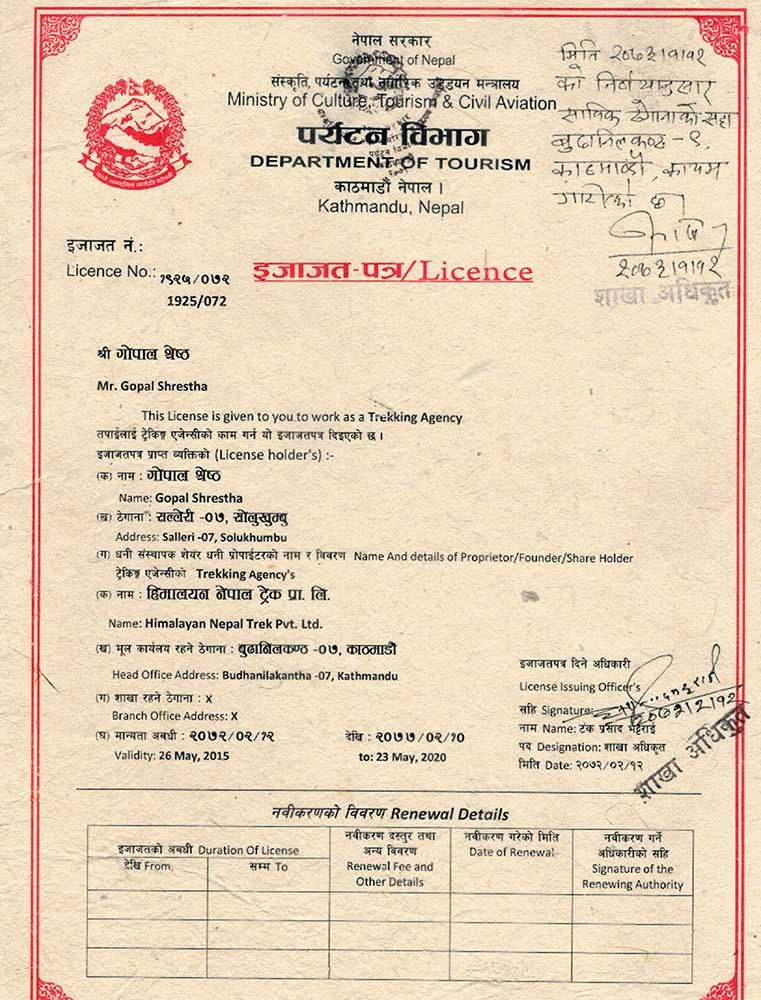 नेपाल सरकार
Government of Nepal
संस्कृति, पर्यटन तथा नागरिक उड्डयन मन्त्रालय
Ministry of Culture, Tourism & Civil Aviation
पर्यटन विभाग
DEPARTMENT OF TOURISM
काठमाडौं नेपाल ।
Kathmandu, Nepal
मिति २०७३।१।१२
का निर्णयानुसार
साविक ठेगानाको सट्टा
बुढानिलकण्ठ - ९,
काठमाडौं, कायम
गरिएको छ।
२०७३।१।१२
शाखा अधिकृत
इजाजत नं.:
Licence No.: १९२५/०७२
1925/072
इजाजत-पत्र/Licence
श्री गोपाल श्रेष्ठ
Mr. Gopal Shrestha
This License is given to you to work as a Trekking Agency
तपाईलाई ट्रेकिङ्ग एजेन्सीको काम गर्न यो इजाजतपत्र दिइएको छ ।
इजाजतपत्र प्राप्त व्यक्तिको (License holder's) :-
(क) नाम : गोपाल श्रेष्ठ
Name: Gopal Shrestha
(ख) ठेगाना : सल्लेरी -०७, सोलुखुम्बु
Address: Salleri -07, Solukhumbu
(ग) धनी संस्थापक शेयर धनी प्रोपाईटरको नाम र विवरण Name And details of Proprietor/Founder/Share Holder
ट्रेकिङ्ग एजेन्सीको Trekking Agency's
(क) नाम : हिमालयन नेपाल ट्रेक प्रा. लि.
Name: Himalayan Nepal Trek Pvt. Ltd.
(ख) मूल कार्यलय रहने ठेगाना : बुढानिलकण्ठ -०७, काठमाडौं
Head Office Address: Budhanilakantha -07, Kathmandu
(ग) शाखा रहने ठेगाना : X
Branch Office Address: X
(घ) मान्यता अवधी : २०७२/०२/१२ देखि : २०७७/०२/१०
Validity: 26 May, 2015 to: 23 May, 2020
इजाजतपत्र दिने अधिकारी
License Issuing Officer's
सहि Signature:
नाम Name: टंक प्रसाद भट्टराई
पद Designation: शाखा अधिकृत
मिति Date: २०७२/०२/१२
शाखा अधिकृत
नवीकरणको विवरण Renewal Details
इजाजतको अवधी Duration Of License
देखि From
सम्म To
नवीकरण दस्तुर तथा
अन्य विवरण
Renewal Fee and
Other Details
नवीकरण गरेको मिति
Date of Renewal
नवीकरण गर्ने
अधिकारीको सहि
Signature of the
Renewing Authority